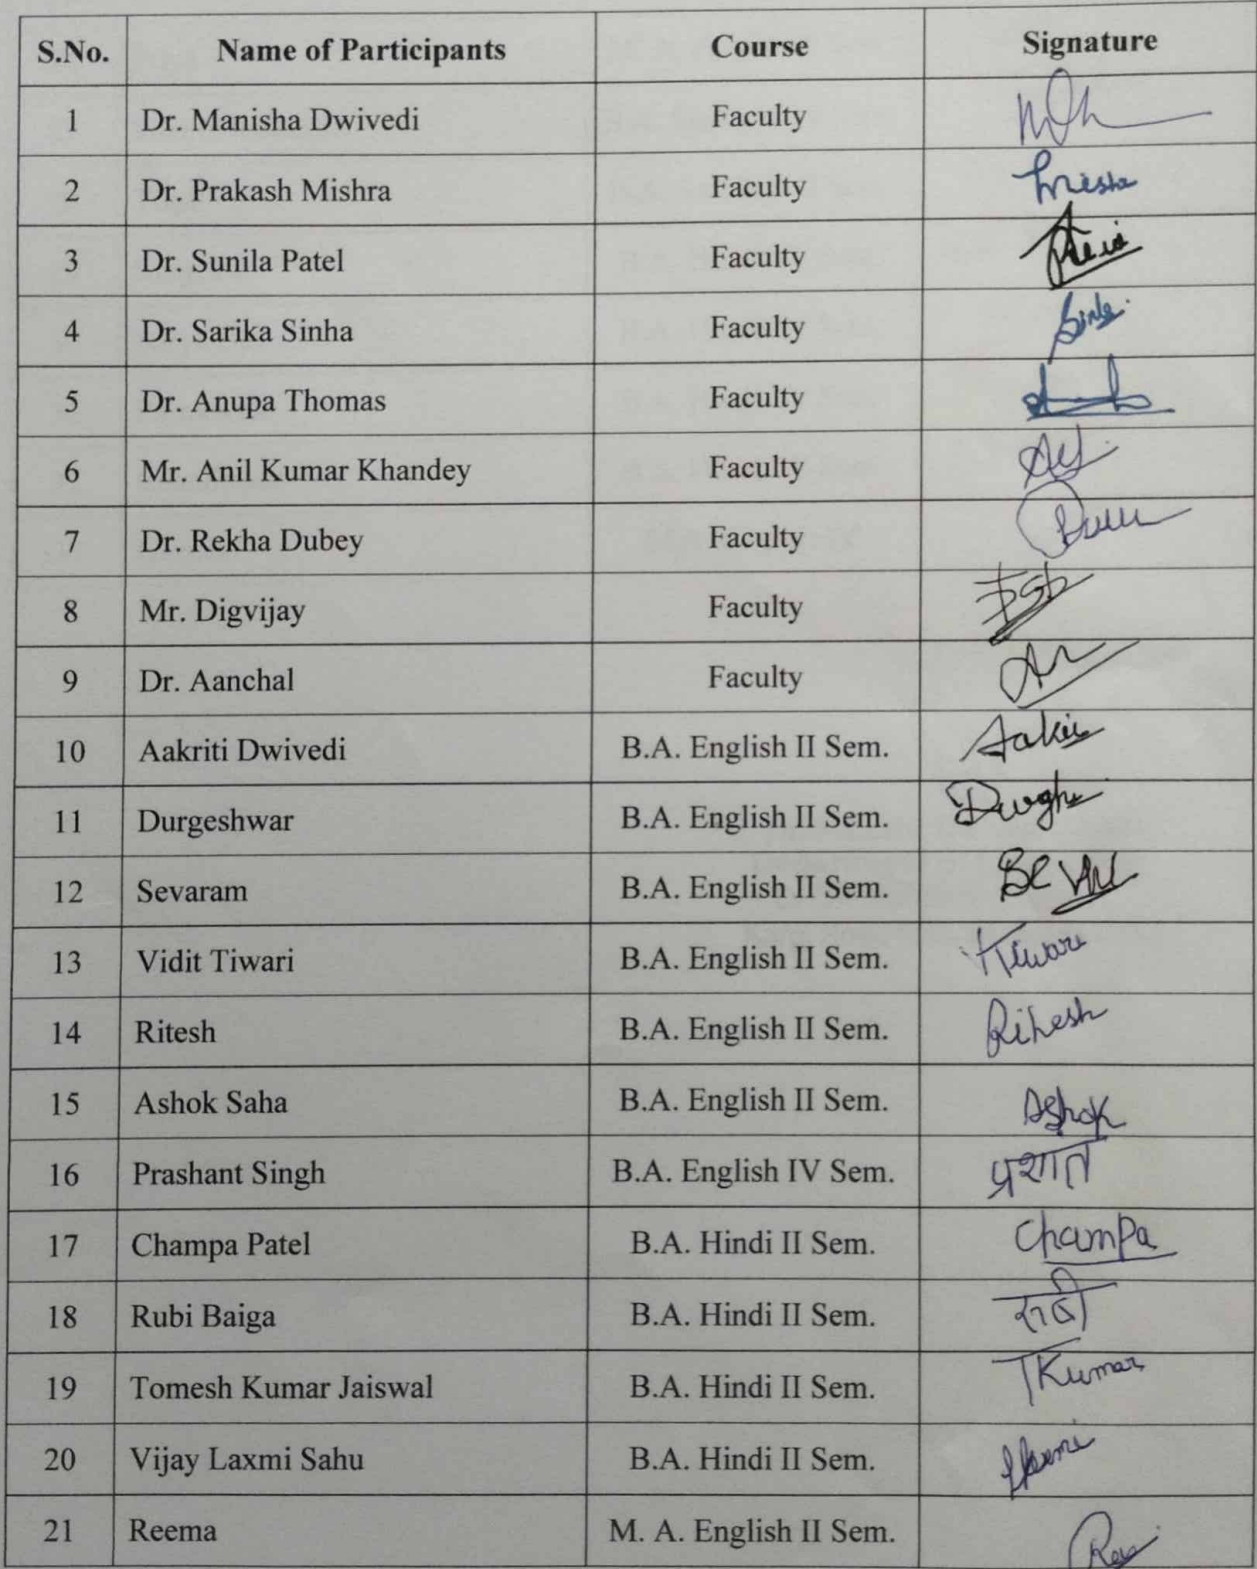 S.No. Name of Participants Course Signature
1 Dr. Manisha Dwivedi Faculty
2 Dr. Prakash Mishra Faculty
3 Dr. Sunila Patel Faculty
4 Dr. Sarika Sinha Faculty
5 Dr. Anupa Thomas Faculty
6 Mr. Anil Kumar Khandey Faculty
7 Dr. Rekha Dubey Faculty
8 Mr. Digvijay Faculty
9 Dr. Aanchal Faculty
10 Aakriti Dwivedi B.A. English II Sem.
11 Durgeshwar B.A. English II Sem.
12 Sevaram B.A. English II Sem.
13 Vidit Tiwari B.A. English II Sem. Tiwari
14 Ritesh B.A. English II Sem. Ritesh
15 Ashok Saha B.A. English II Sem. Ashok
16 Prashant Singh B.A. English IV Sem. प्रशांत
17 Champa Patel B.A. Hindi II Sem. Champa
18 Rubi Baiga B.A. Hindi II Sem. रूबी
19 Tomesh Kumar Jaiswal B.A. Hindi II Sem. TKumar
20 Vijay Laxmi Sahu B.A. Hindi II Sem.
21 Reema M. A. English II Sem.